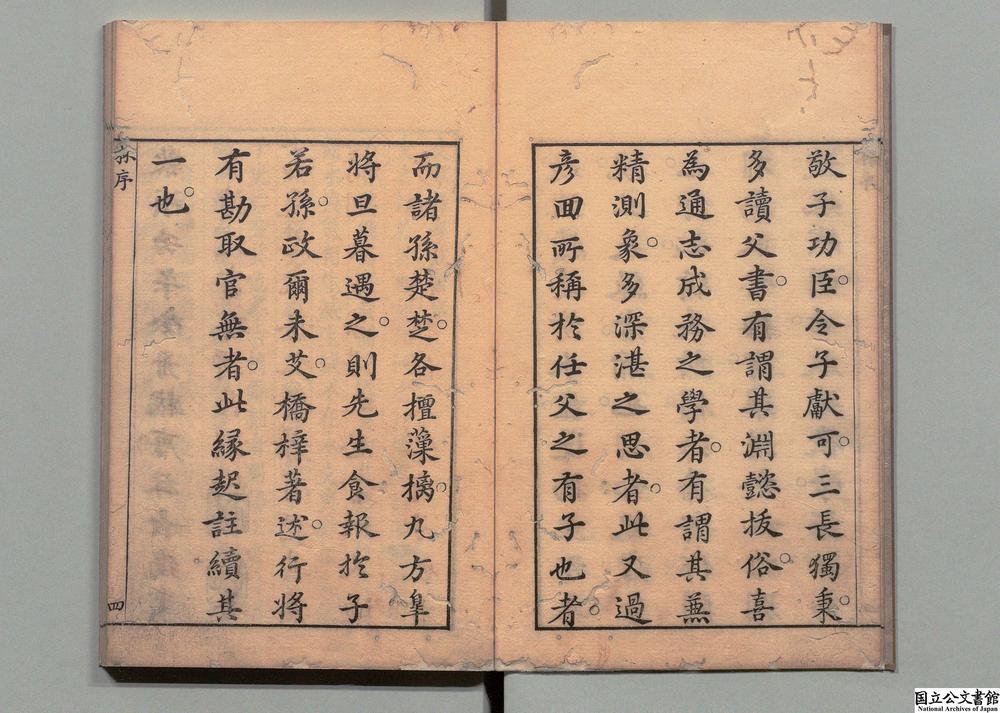 敬子功臣。令子獻可。三長獨秉。
多讀父書。有謂其淵懿拔俗。喜
為通志成務之學者。有謂其蕪
精測象。多深湛之思者。此又過
彦回所稱於任父之有子也者。
而諸孫楚楚。各擅藻摛。九方臯
將旦暮遇之。則先生食報於子
若孫。政爾未艾。橋梓著述。行將
有勘取官無者。此緣起註續其
一也。
序
四
国立公文書館
National Archives of Japan